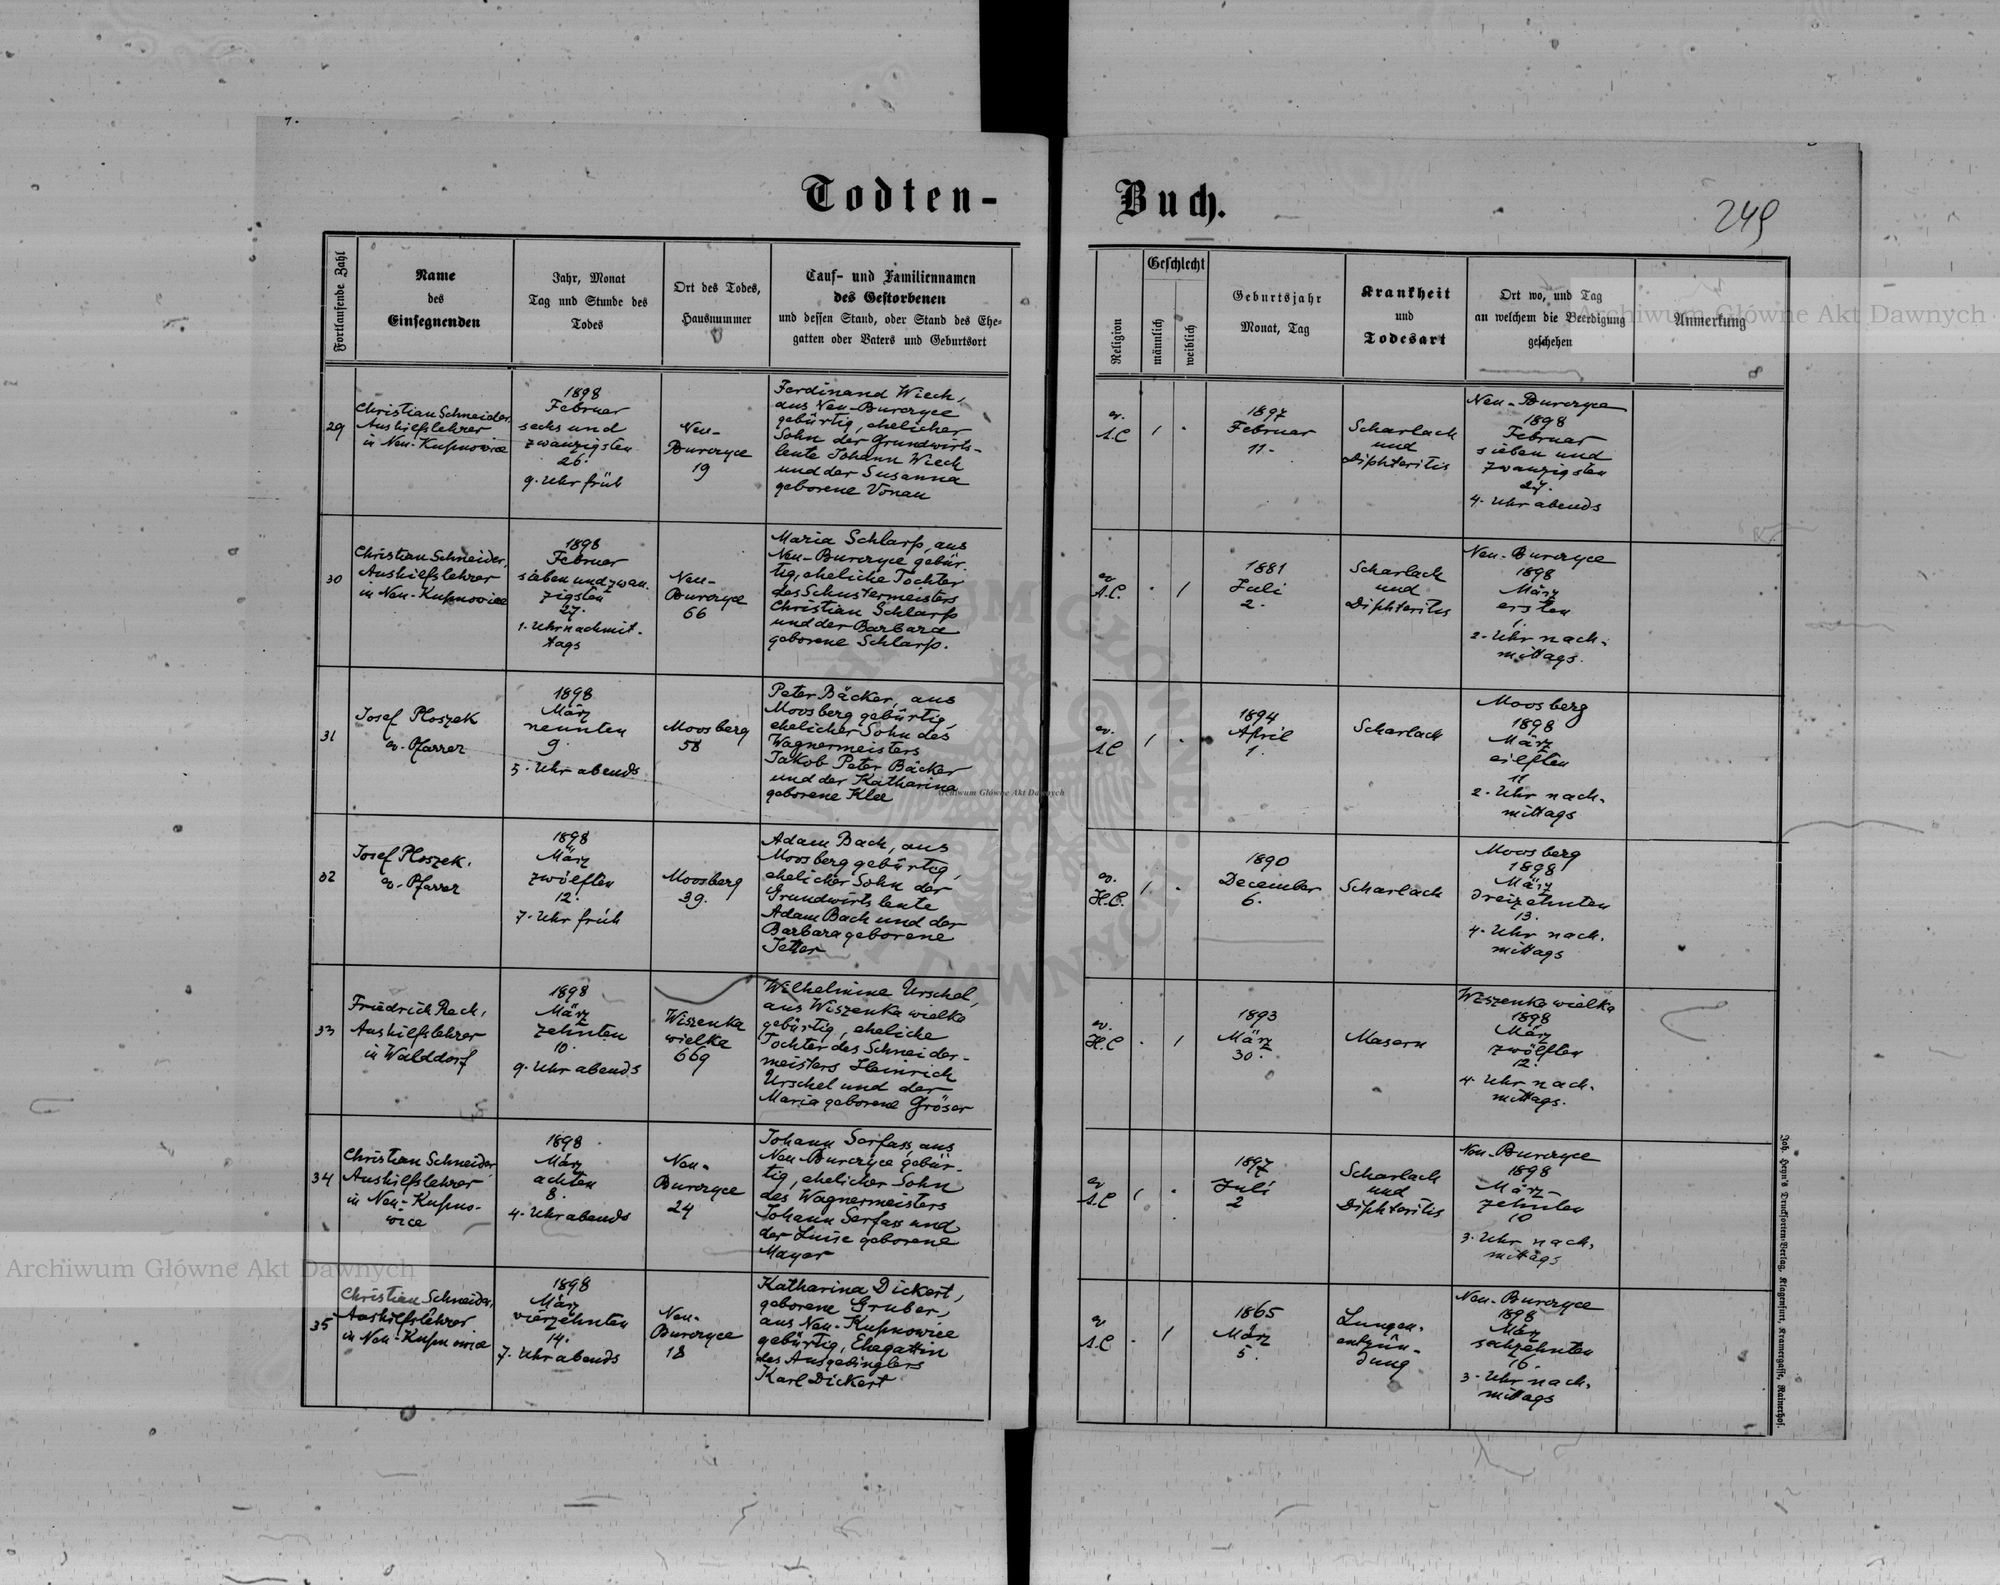 Todten-
Buch.
249
Fortlaufende Zahl
Name
des
Einsegnenden
Jahr, Monat
Tag und Stunde des
Todes
Ort des Todes,
Hausnummer
Tauf- und Familiennamen
des Gestorbenen
und dessen Stand, oder Stand des Ehe-
gatten oder Vaters und Geburtsort
Religion
Geschlecht
männlich
weiblich
Geburtsjahr
Monat, Tag
Krankheit
und
Todesart
Ort wo, und Tag
an welchem die Beerdigung
geschehen
Anmerkung
29
Christian Schneider,
Aushilfslehrer
in Neu-Kupnowice
1898
Februar
sechs und
zwanzigsten
26.
9. Uhr früh
Neu-
Burczyce
19
Ferdinand Wiech,
aus Neu-Burczyce
gebürtig, ehelicher
Sohn der Grundwirts-
leute Johann Wiech
und der Susanna
geborene Vonau
ev.
A.C
1
1897
Februar
11.
Scharlach
und
Diphteritis
Neu-Burczyce
1898
Februar
sieben und
zwanzigsten
27.
4. Uhr abends
30
Christian Schneider,
Aushilfslehrer
in Neu-Kupnowice
1898
Februar
sieben und zwan-
zigsten
27.
1. Uhr nachmit-
tags
Neu-
Burczyce
66
Maria Schlarp, aus
Neu-Burczyce gebür-
tig, eheliche Tochter
des Schustermeisters
Christian Schlarp
und der Barbara
geborene Schlarp.
ev
A.C.
1
1881
Juli
2.
Scharlach
und
Diphteritis
Neu-Burczyce
1898
März
ersten
1.
2. Uhr nach-
mittags.
31
Josef Ploszek
ev. Pfarrer
1898
März
neunten
9.
5. Uhr abends
Moosberg
58
Peter Bäcker, aus
Moosberg gebürtig,
ehelicher Sohn des
Wagnermeisters
Jakob Peter Bäcker
und der Katharina
geborene Klee
ev.
A.C
1
1894
April
1.
Scharlach
Moosberg
1898
März
eilften
11
2. Uhr nach-
mittags
32
Josef Ploszek.
ev. Pfarrer
1898
März
zwölften
12.
7. Uhr früh
Moosberg
39.
Adam Bach, aus
Moosberg gebürtig,
ehelicher Sohn der
Grundwirtsleute
Adam Bach und der
Barbara geborene
Jetter
ev.
H.C.
1
1890
December
6.
Scharlach
Moosberg
1898
März
dreizehnten
13.
4. Uhr nach-
mittags
33
Friedrich Rech,
Aushilfslehrer
in Walddorf
1898
März
zehnten
10.
9. Uhr abends
Wiszenka
wielka
669
Wilhelmine Urschel,
aus Wiszenka wielka
gebürtig, eheliche
Tochter des Schneider-
meisters Heinrich
Urschel und der
Maria geborene Gröser
ev.
H.C
1
1893
März
30.
Masern
Wiszenka wielka
1898
März
zwölften
12.
4. Uhr nach-
mittags.
34
Christian Schneider
Aushilfslehrer
in Neu-Kupno-
wice
1898
März
achten
8.
4. Uhr abends
Neu-
Burczyce
24
Johann Serfass, aus
Neu-Burczyce gebür-
tig, ehelicher Sohn
des Wagnermeisters
Johann Serfass und
der Luise geborene
Mayer
ev
A.C
1
1897
Juli
2
Scharlach
und
Diphteritis
Neu-Burczyce
1898
März
zehnten
10
3. Uhr nach-
mittags
35
Christian Schneider,
Aushilfslehrer
in Neu-Kupnowice
1898
März
vierzehnten
14.
7. Uhr abends
Neu-
Burczyce
18
Katharina Dickert,
geborene Gruber,
aus Neu-Kupnowice
gebürtig, Ehegattin
des Ausgedinglers
Karl Dickert
ev
A.C
1
1865
März
5.
Lungen-
entzün-
dung
Neu-Burczyce
1898
März
sechzehnten
16.
3. Uhr nach-
mittags
Joh. Heyn's Drucksorten-Verlag, Klagenfurt, Kramergasse, Rainerhof.
Archiwum Główne Akt Dawnych
Archiwum Główne Akt Dawnych
Archiwum Główne Akt Dawnych